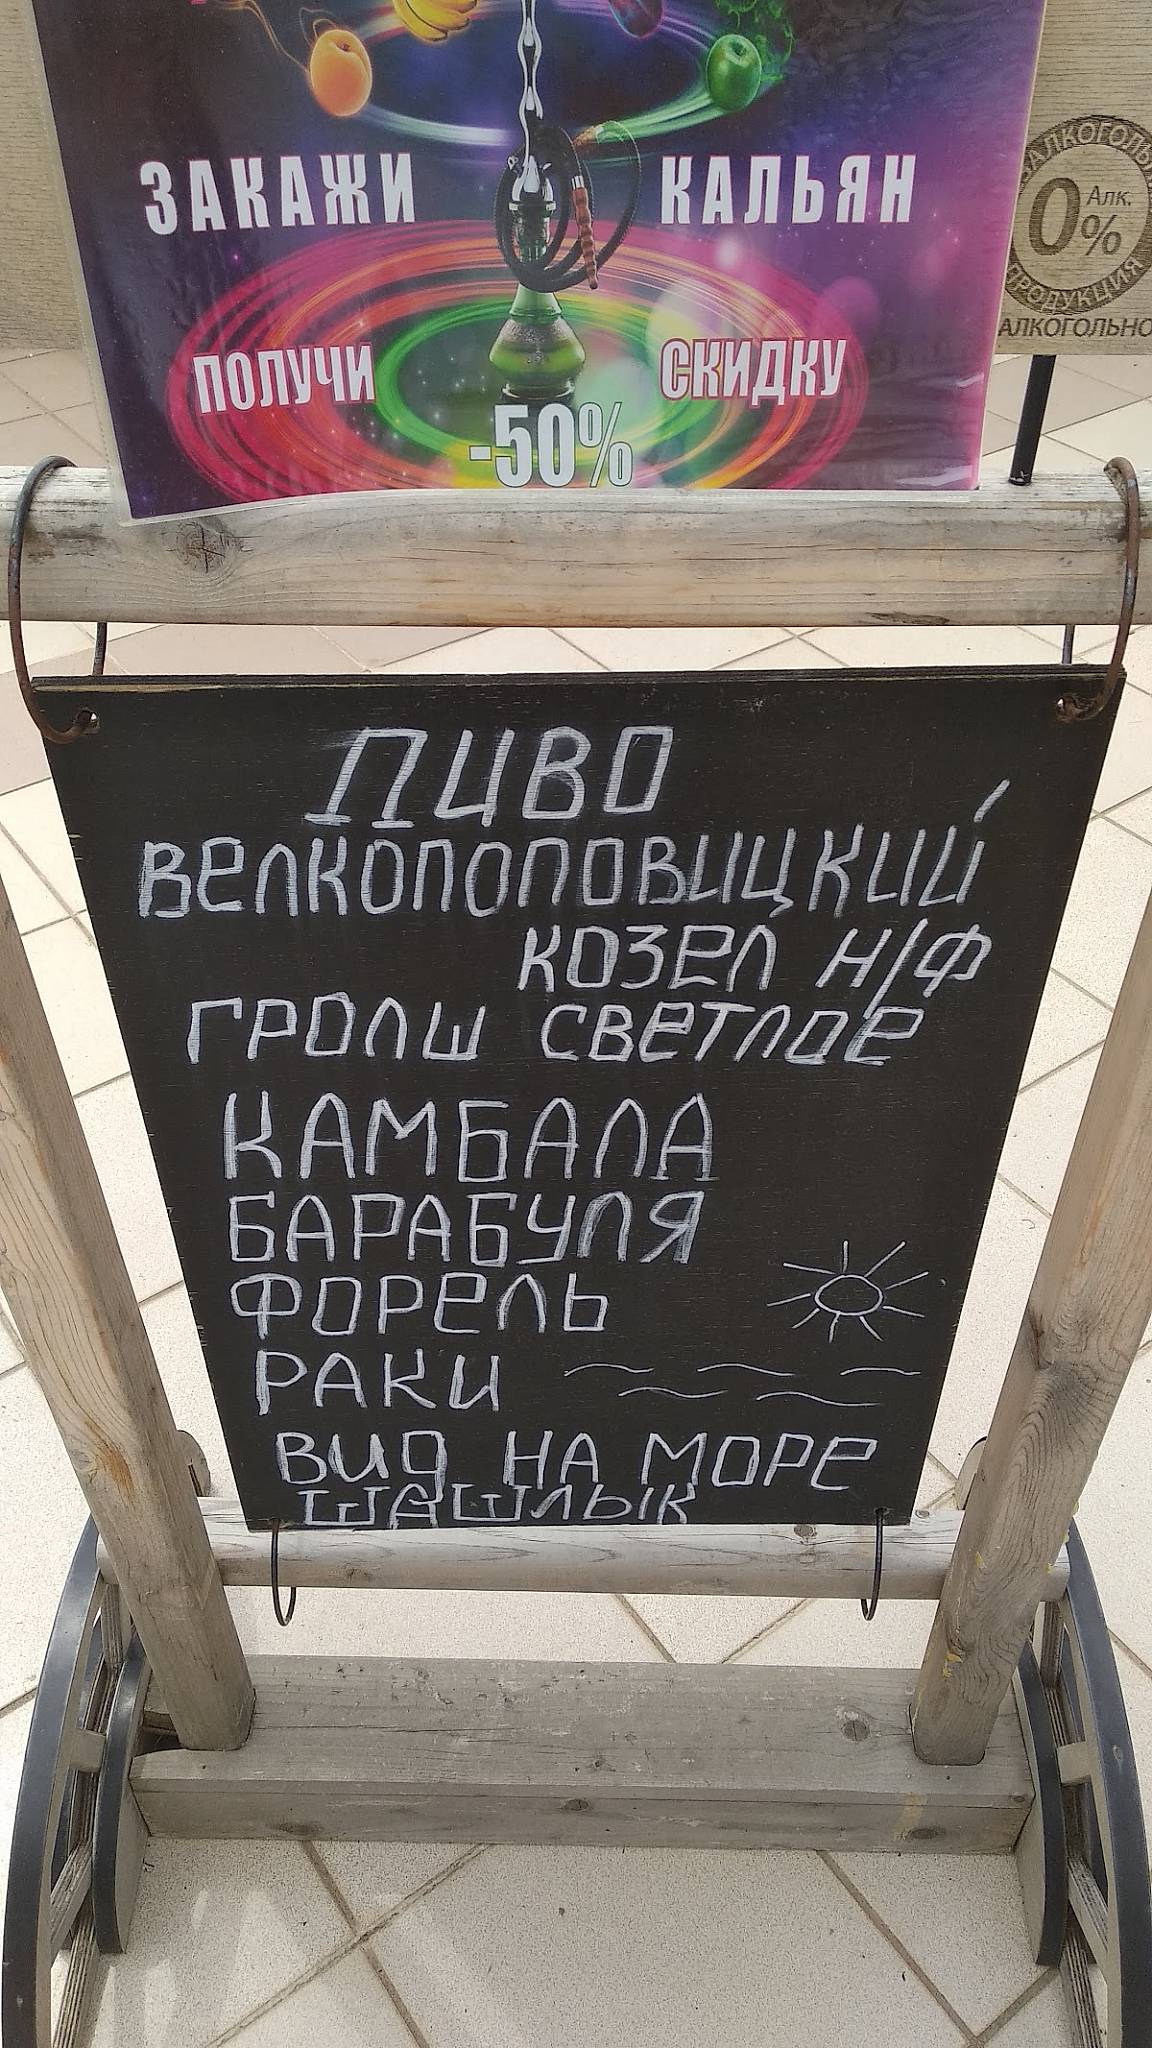 ЗАКАЖИ КАЛЬЯН
ПОЛУЧИ СКИДКУ
-50%
0% Алк.
ПРОДУКЦИЯ
ПИВО
ВЕЛКОПОПОВИЦКИЙ
КОЗЕЛ Н/Ф
ГРОЛШ СВЕТЛОЕ
КАМБАЛА
БАРАБУЛЯ
ФОРЕЛЬ
РАКИ
ВИД НА МОРЕ
ШАШЛЫК